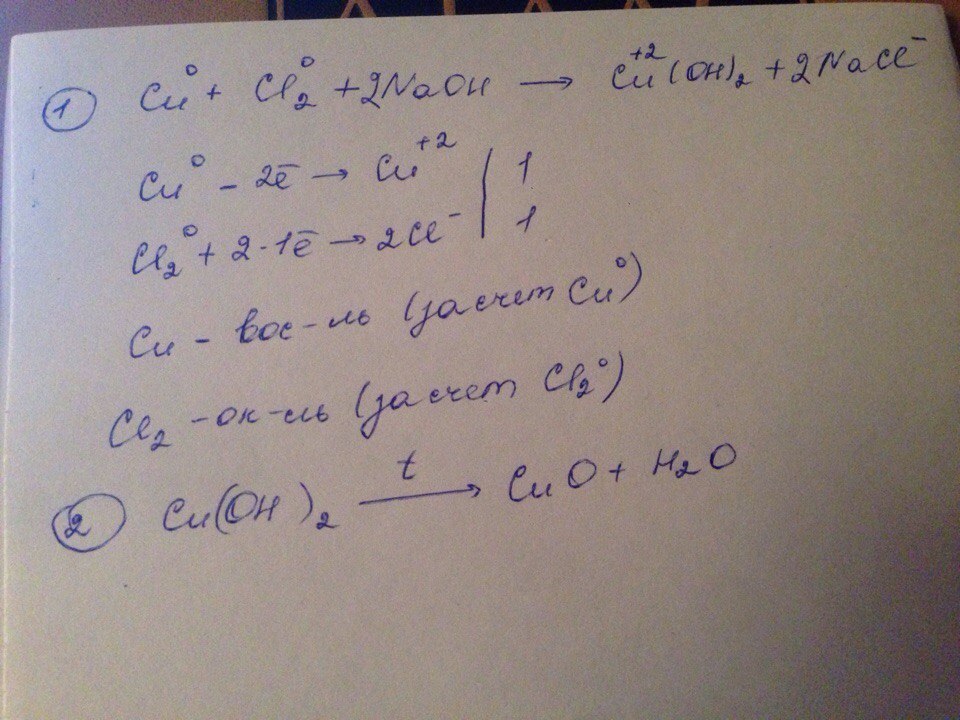 ① Cu⁰ + Cl₂⁰ + 2NaOH → Cu⁺²(OH)₂ + 2NaCl⁻
Cu⁰ - 2ē → Cu⁺² | 1
Cl₂⁰ + 2·1ē → 2Cl⁻ | 1
Cu - вос-ль (за счет Cu⁰)
Cl₂ - ок-ль (за счет Cl₂⁰)
② Cu(OH)₂ t→ CuO + H₂O